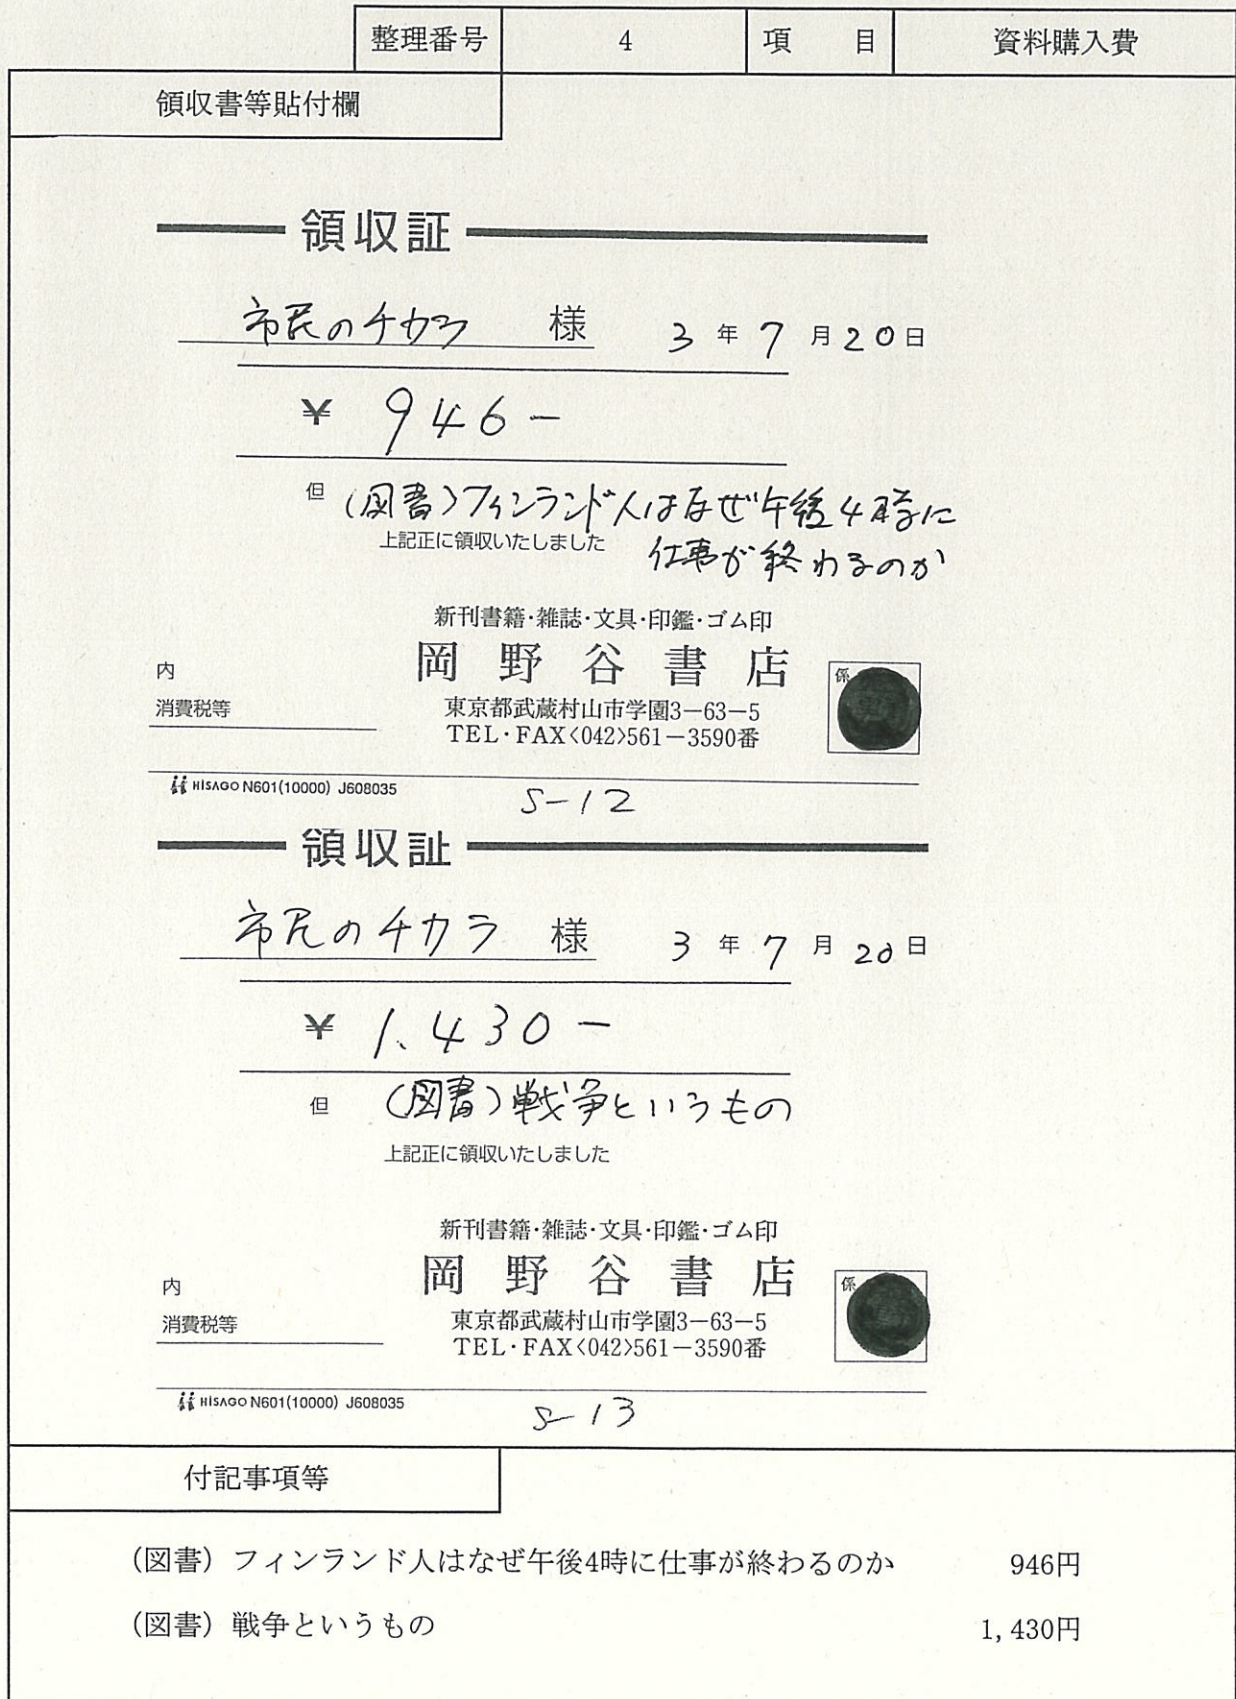 整理番号 4 項 目 資料購入費
領収書等貼付欄
領収証
市民のチカラ 様 3 年 7 月 20 日
¥ 946-
但 (図書)フィンランド人はなぜ午後4時に
上記正に領収いたしました 仕事が終わるのか
新刊書籍・雑誌・文具・印鑑・ゴム印
岡野谷書店
内 係
消費税等 東京都武蔵村山市学園3-63-5
TEL・FAX<042>561-3590番
HISAGO N601(10000) J608035
S-12
領収証
市民のチカラ 様 3 年 7 月 20 日
¥ 1,430-
但 (図書)戦争というもの
上記正に領収いたしました
新刊書籍・雑誌・文具・印鑑・ゴム印
岡野谷書店
内 係
消費税等 東京都武蔵村山市学園3-63-5
TEL・FAX<042>561-3590番
HISAGO N601(10000) J608035
S-13
付記事項等
(図書)フィンランド人はなぜ午後4時に仕事が終わるのか 946円
(図書)戦争というもの 1,430円